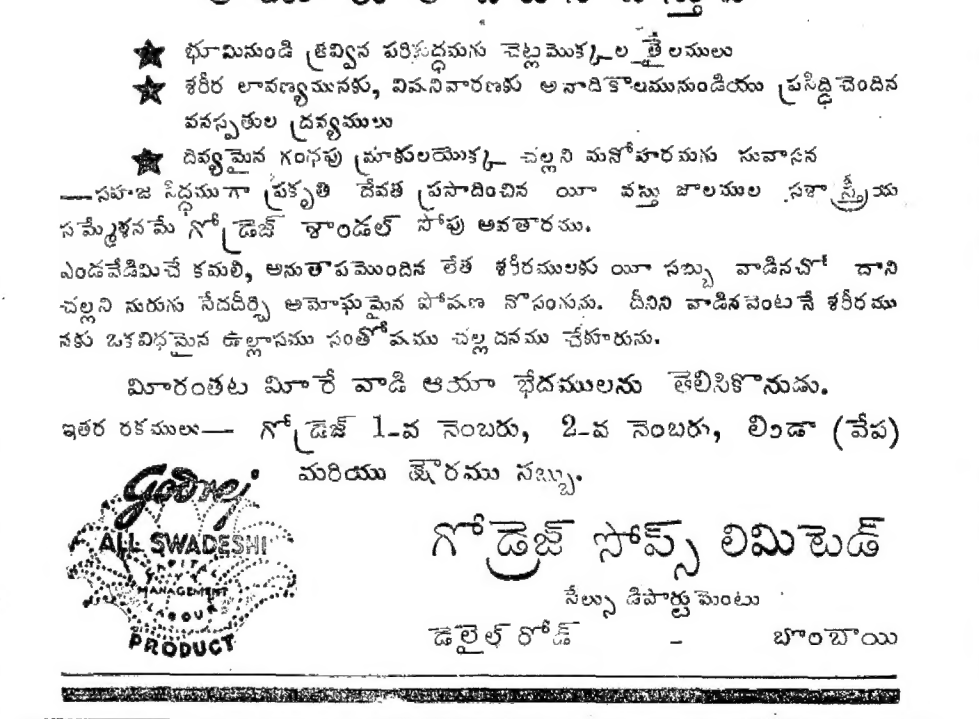 ★ భూమినుండి త్రవ్విన పరిసిద్ధమగు చెట్లమొక్కల తైలములు
★ శరీర లావణ్యమునకు, విషనివారణకు అనాదికాలమునుండియు ప్రసిద్ధిచెందిన
వనస్పతుల ద్రవ్యములు
★ దివ్యమైన గంధపు మ్రాకులయొక్క చల్లని మనోహరమగు సువాసన
—సహజ సిద్ధముగా ప్రకృతి దేవత ప్రసాదించిన యీ వస్తు జాలముల సశాస్త్రీయ
సమ్మేళనమే గోడ్రెజ్ శాండల్ సోపు అవతారము.
ఎండవేడిమిచే కమలి, అనుతాపమొందిన లేత శరీరములకు యీ సబ్బు వాడినచో దాని
చల్లని నురుగు సేదదీర్చి అమోఘమైన పోషణ నొసంగును. దీనిని వాడినవెంటనే శరీరము
నకు ఒకవిధమైన ఉల్లాసము సంతోషము చల్లదనము చేకూరును.
మీరంతట మీరే వాడి ఆయా భేదములను తెలిసికొనుడు.
ఇతర రకములు— గోడ్రెజ్ 1-వ నెంబరు, 2-వ నెంబరు, లిండా (వేప)
మరియు క్షౌరము సబ్బు.
Godrej
ALL SWADESHI
CAPITAL
MANAGEMENT
LABOUR
PRODUCT
గోడ్రెజ్ సోప్స్ లిమిటెడ్
సేల్సు డిపార్టుమెంటు
డెలైల్ రోడ్ - బొంబాయి